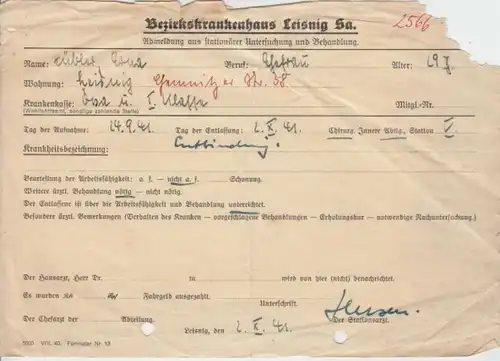 Bezirkskrankenhaus Leisnig Sa.
2566
Abmeldung aus stationärer Untersuchung und Behandlung.
Name: Erna Beruf: Ehefrau Alter: 29 J.
Wohnung: Leisnig Chemnitzer Str. 58
Krankenkasse: u. I. Klasse Mitgl.-Nr.
(Wohlfahrtsamt, sonstige zahlende Stelle)
Tag der Aufnahme: 14.9.41. Tag der Entlassung: 2. X. 41. Chirurg. Innere Abtlg., Station V.
Krankheitsbezeichnung: Entbindung.
Beurteilung der Arbeitsfähigkeit: a. f. — nicht a. f. — Schonung.
Weitere ärztl. Behandlung nötig — nicht nötig.
Der Entlassene ist über die Arbeitsfähigkeit und Behandlung unterrichtet.
Besondere ärztl. Bemerkungen (Verhalten des Kranken — vorgeschlagene Behandlungen — Erholungskur — notwendige Nachuntersuchung.)
Der Hausarzt, Herr Dr. in wird von hier (nicht) benachrichtet.
Es wurden RM Rpf Fahrgeld ausgezahlt. Unterschrift.
Der Chefarzt der Abteilung. Der Stationsarzt.
Leisnig, den 2. X. 41.
5000 VIII. 40. Formular Nr. 13